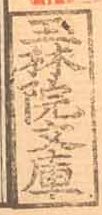 玉林院文庫